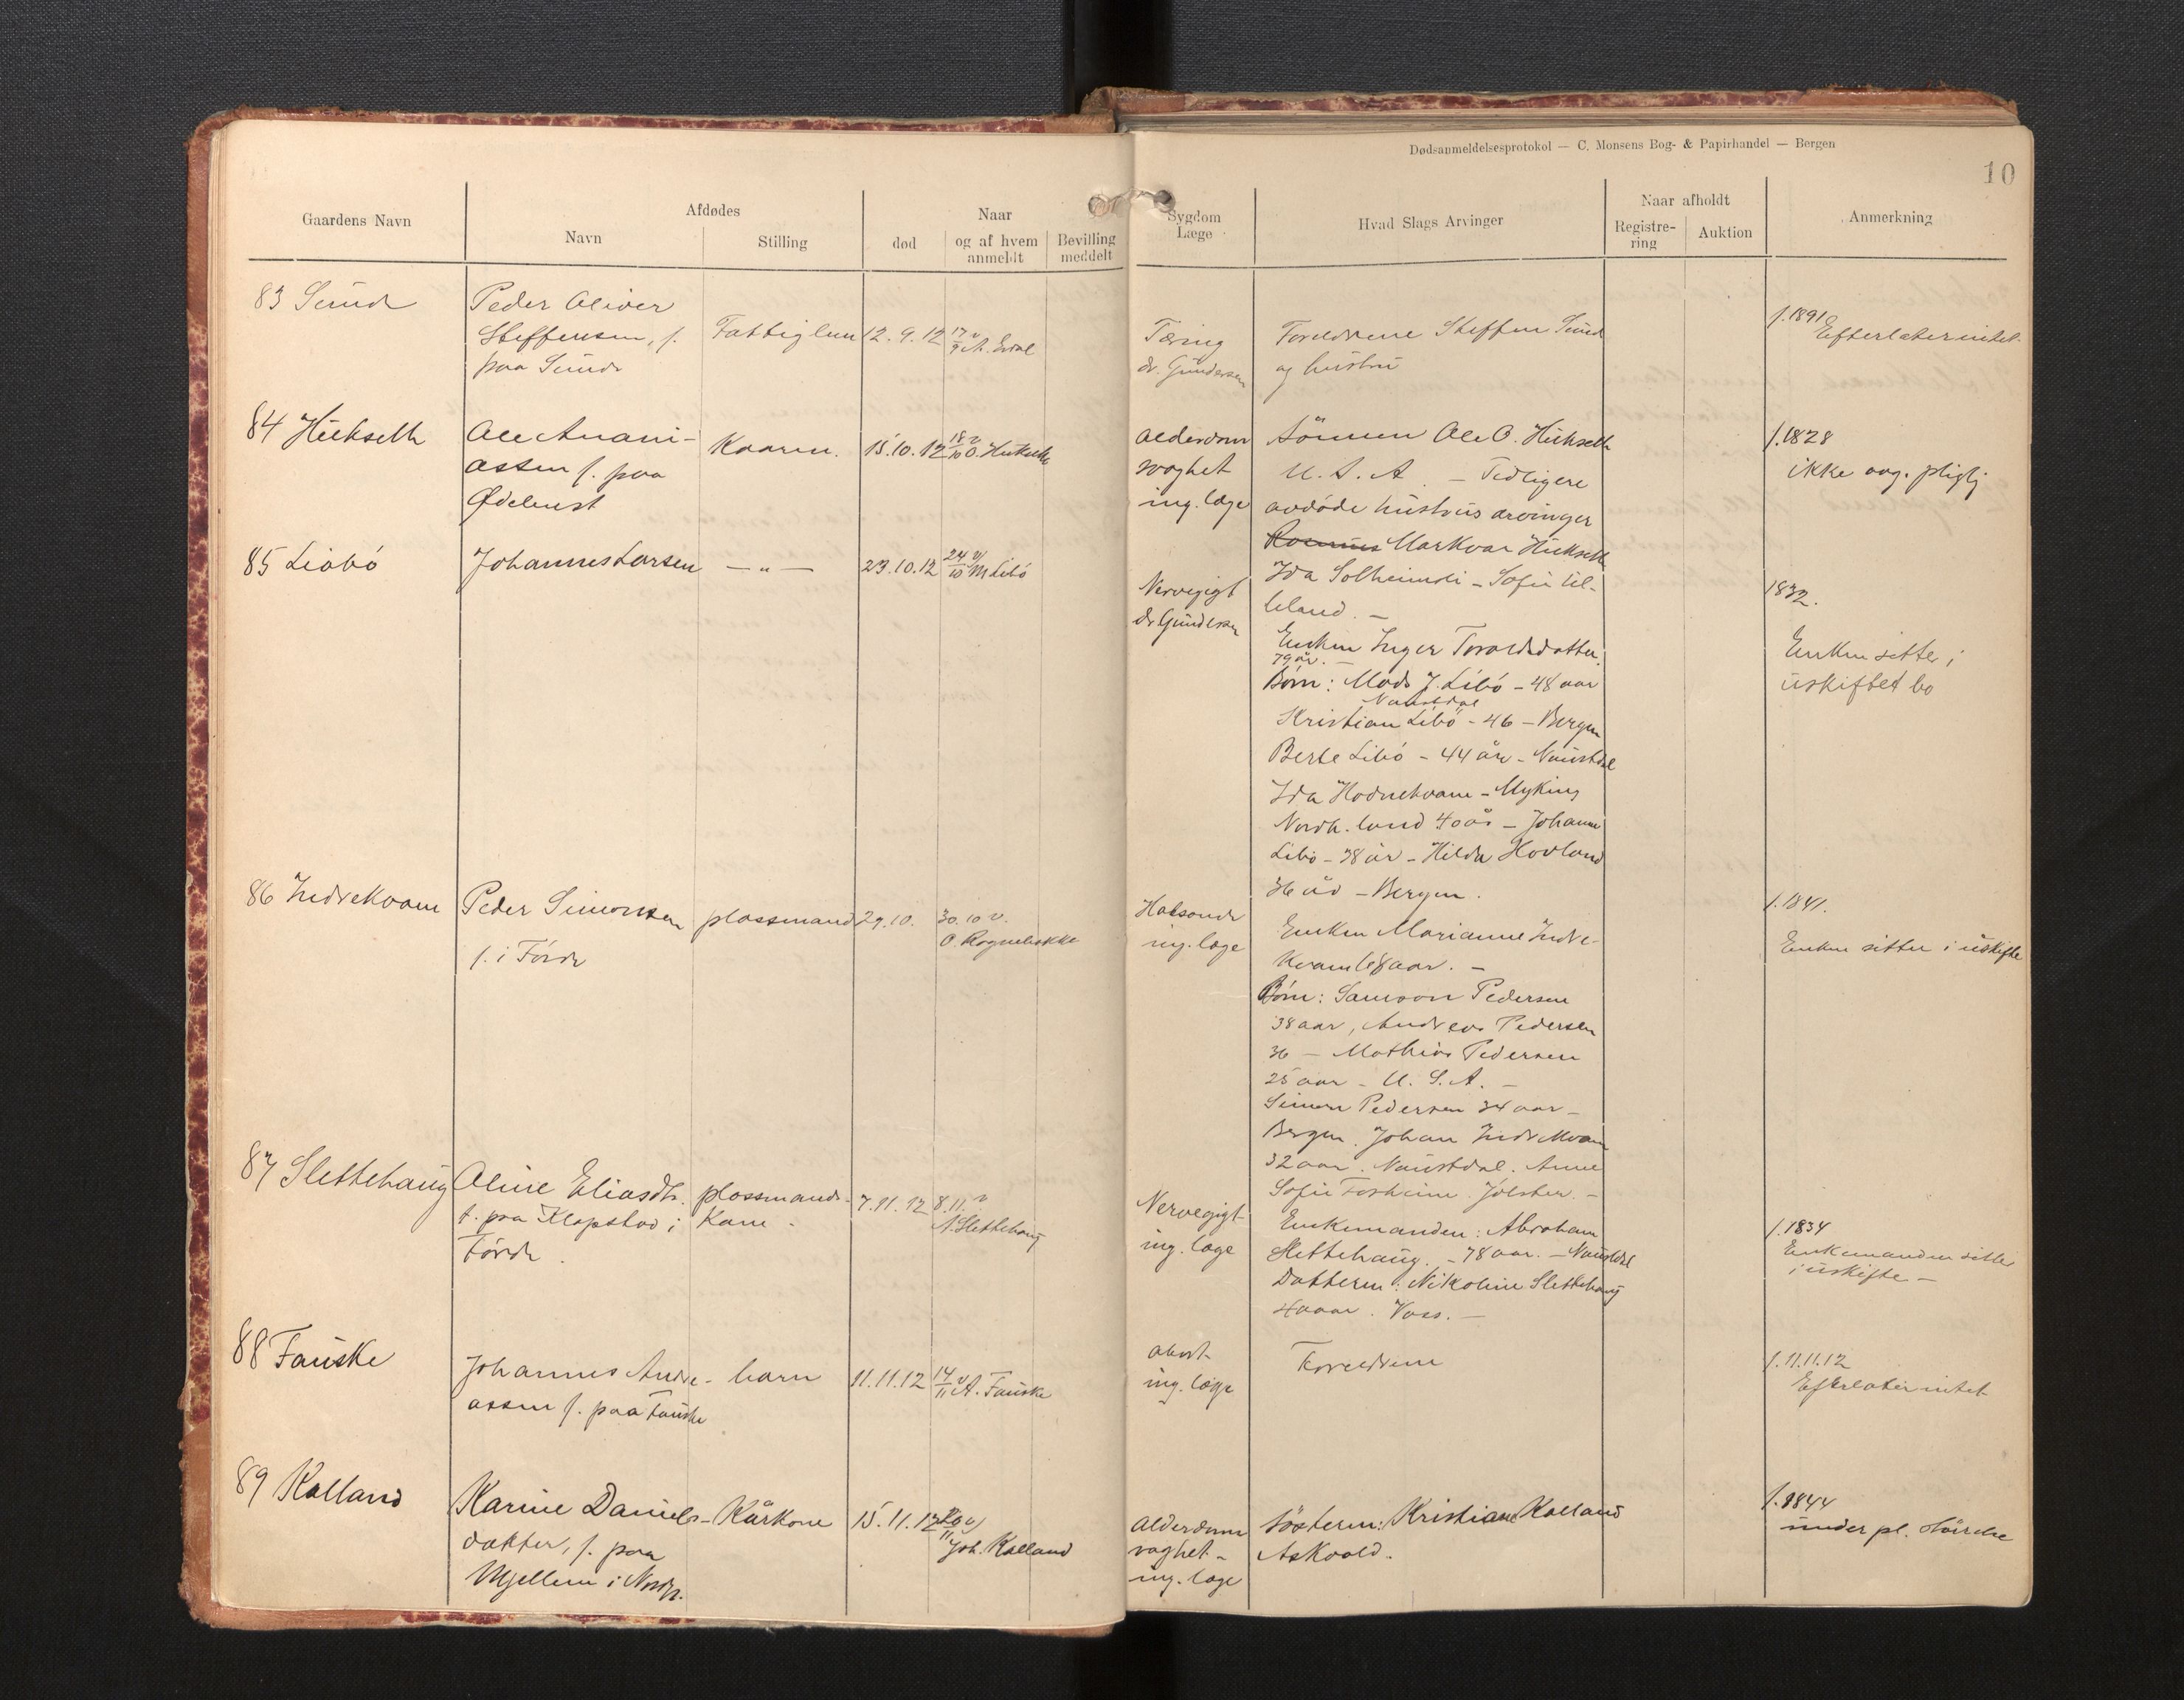 Dødsanmeldelsesprotokol — C. Monsens Bog- & Papirhandel — Bergen
10
Gaardens Navn
Afdødes
Navn
Stilling
Naar
død
og af hvem anmeldt
Bevilling meddelt
Sygdom Læge
Hvad Slags Arvinger
Naar afholdt
Registre-ring
Auktion
Anmerkning
83 Sunde
Peder Oliver
Steffensen, f.
paa Sunde
Fattiglem
12.9.12
17/9 v
A.
Tæring
dr. Gundersen
Foreldrene Steffen Sunde
og hustru
f. 1891
Efterlater intet.
84 Hukseth
Ole Anani-
assen f. paa
Ødelust
Kaarm.
15.10.12
18/10 v
O. Hukseth
Alderdom
svaghet
ing. læge
Sönnen Ole O. Hukseth
U. S. A. — Tidligere
avdöde hustrus arvinger
Markvar Hukseth
Ida Solheimsli - Sofie Ul-
leland. —
f. 1828
ikke aag. pligtig
85 Liabö
Johannes Larsen
— „ —
23.10.12
24/10 v
M Libö
Nervegigt
dr Gundersen
Enken Inger Toraldsdatter
79 år. —
Børn: Mads J. Libö - 48 aar
Naustdal
Kristian Libö - 46 - Bergen
Berte Libö - 44 år - Naustdal
Ida Hodnekvam - Myking
Nordh. land 40 år - Johanne
Libö - 38 år - Hilda Hovland
36 år - Bergen.
1832.
Enken sitter i
uskiftet bo
86 Indrekvam
Peder Simonsen
f. i Förde
plassmand
29.10.
30.10 v.
O. Rognebakke
Halsonde
ing. læge
Enken Marianne Indre-
kvam 68 aar. —
Børn: Samson Pedersen
38 aar, Andreas Pedersen
36 — Mathias Pedersen
25 aar - U. S. A. —
Simon Pedersen 34 aar -
Bergen. Johan Indrekvam
32 aar. Naustdal. Anne
Sofie Forheim. Jölster. —
f. 1841.
Enken sitter i uskifte
87 Slettehaug
Oline Eliasdtr.
f. paa Klopstad i
Förde.
plassmands-
kone -
7.11.12
8.11. v
A. Slettehaug
Nervegigt
ing. læge
Enkemanden: Abraham
Slettehaug. - 78 aar. - Naustdal
Datteren: Nikoline Slettehaug
40 aar. Voss. —
f. 1834
Enkemanden sitter
i uskifte —
88 Fauske
Johannes Andre-
assen f. paa Fauske
barn
11.11.12
14/11 v
A. Fauske
abort
ing. læge
Foreldrene
f. 11.11.12
Efterlater intet
89 Kalland
Karine Daniels-
datter, f. paa
Mjellem i Nordf.
Kårkone
15.11.12
20/11 v
Joh. Kalland
Alderdom
vaghet -
ing. læge
Søsteren: Kristiane Kalland
Askvold.
f. 1844
under pl.